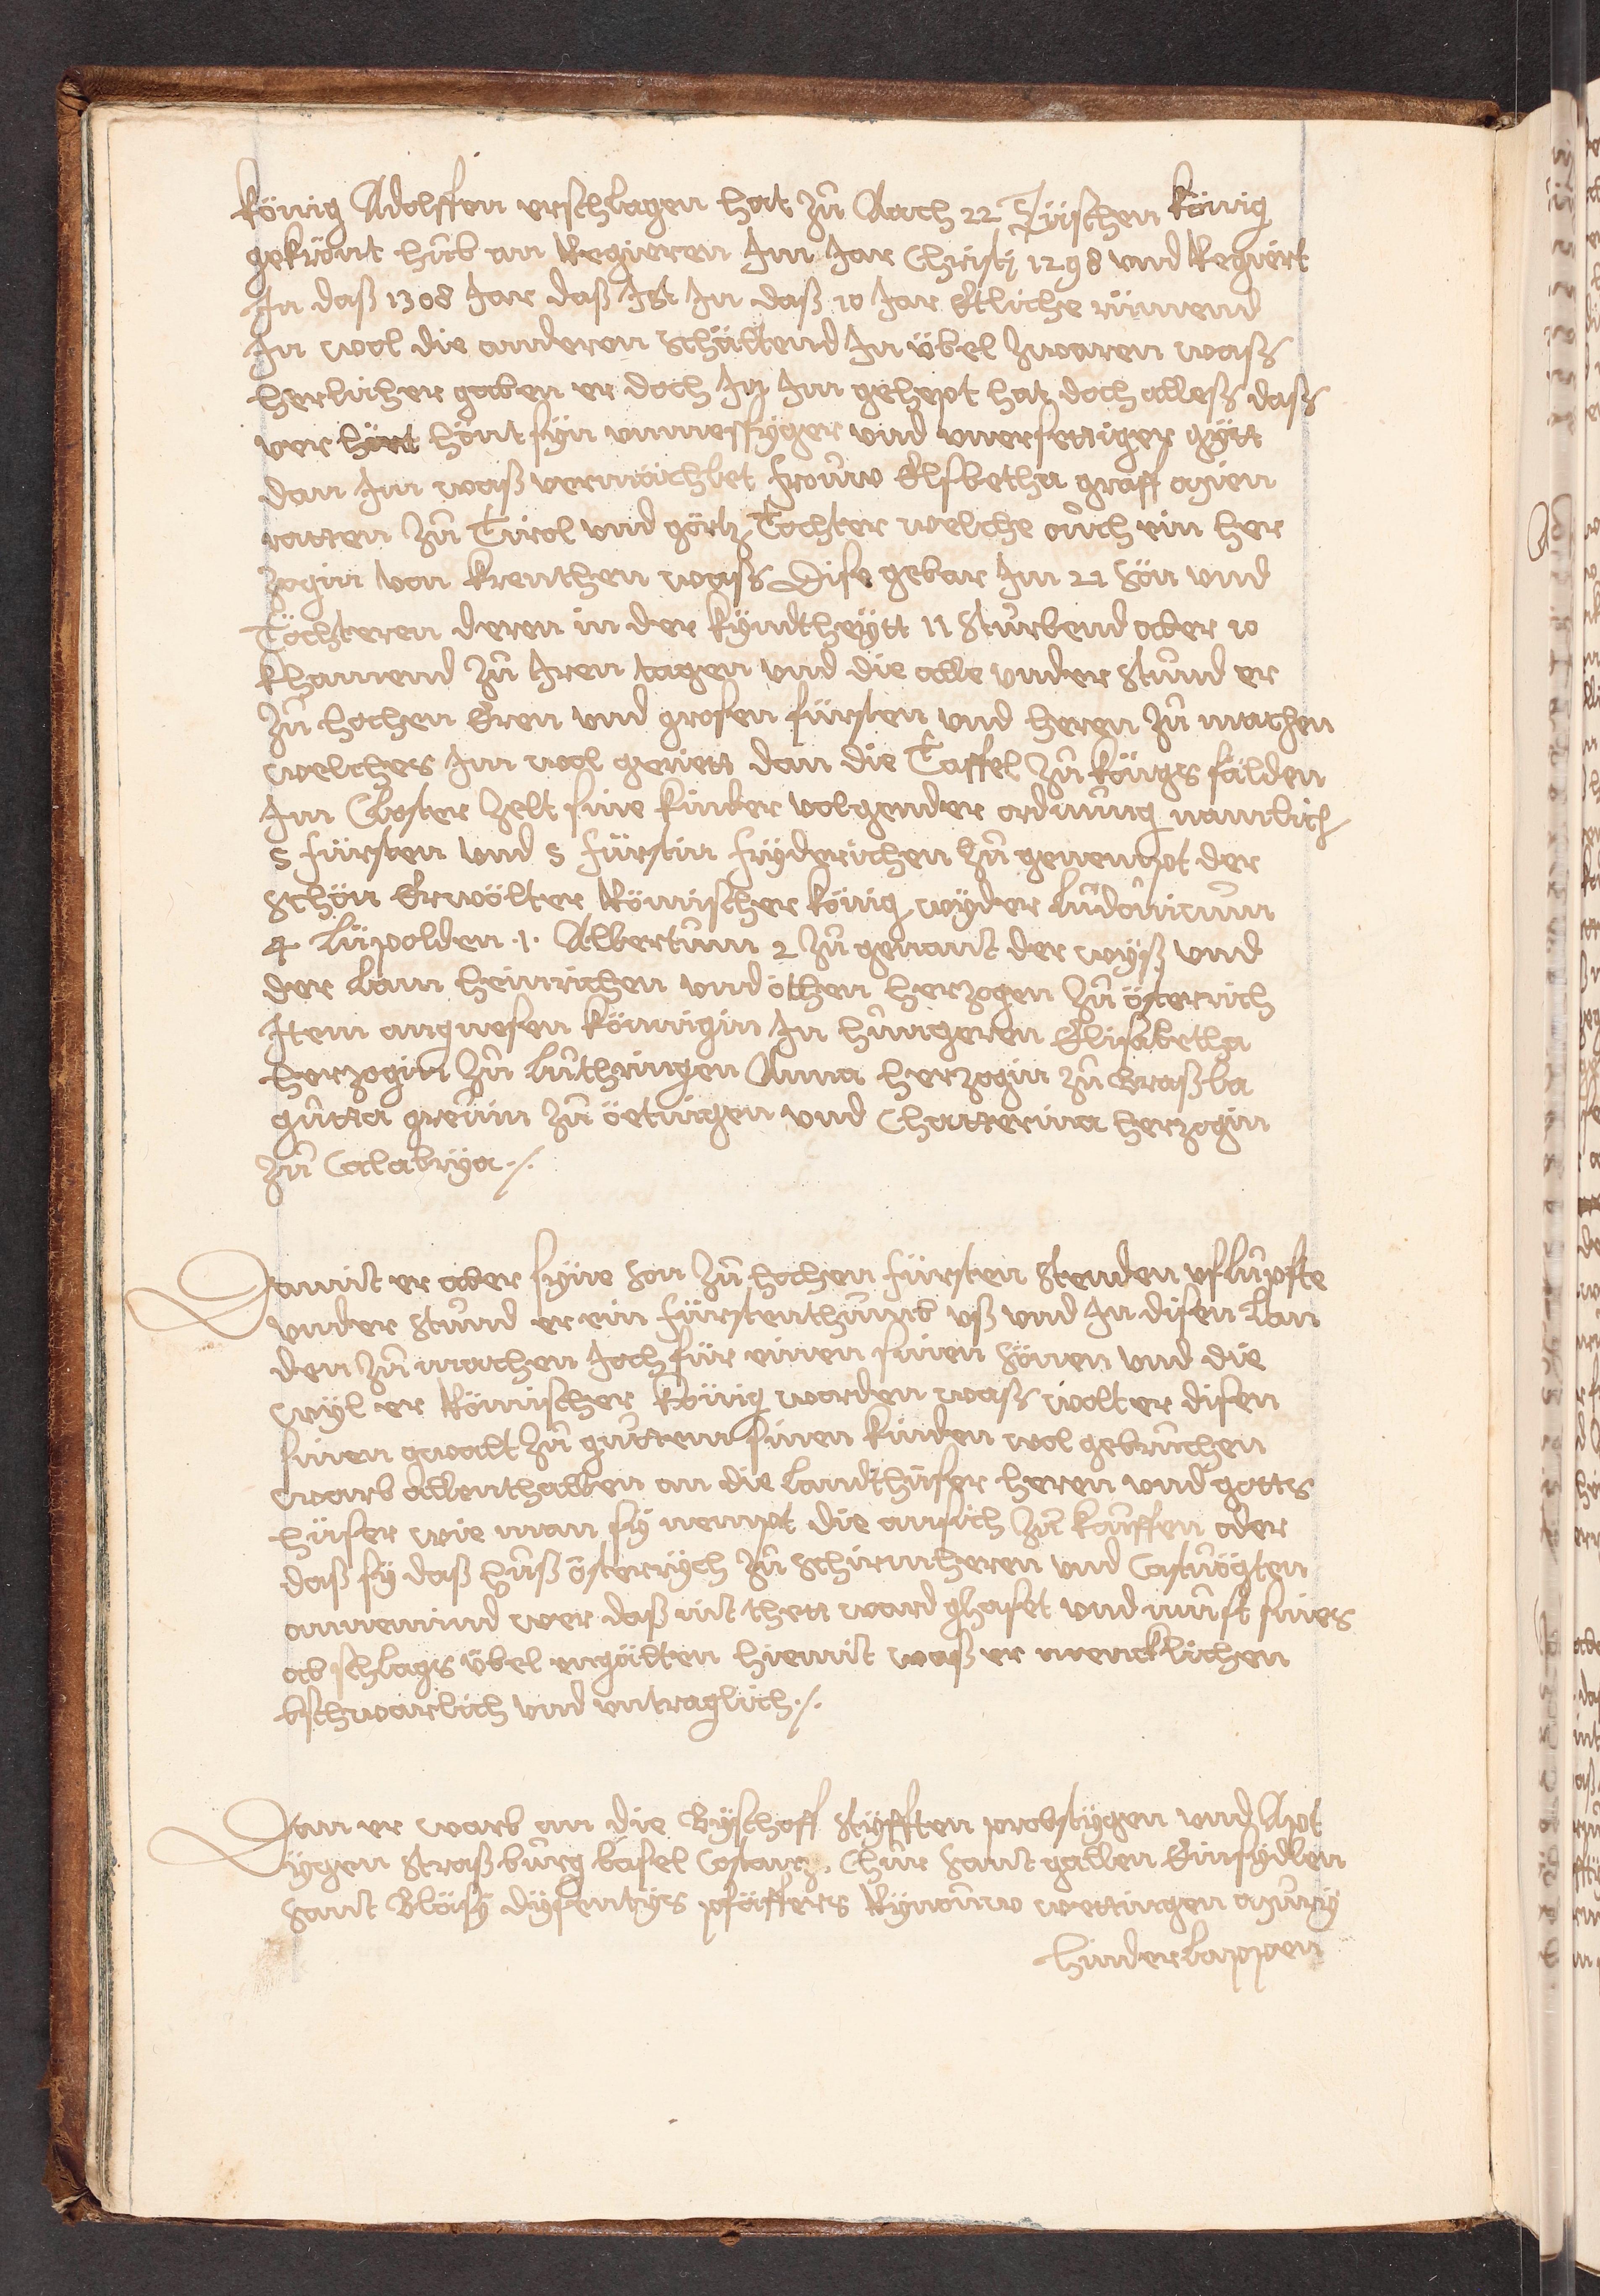 König Adolffen erschlagen hat zů Aach 22 Tütschen König
gekrönt hůb an Regieren Im Jar Christj 1298 vnd Regiert
In daß 1308 Jar daß Ist In daß 10 Jar Etliche rümend
In wol die anderen Schältend In übel zwaren waß
herlicher gaben er doch In Im gehept hat doch alleß daß
ver hönt syn vnmessyger vnd vnersettiger gytt
dan Im waß vermächlet frouw Elsbetha graff
ratten zů Tirol vnd görtz Tochter welche ouch ein her
zogin von Krenthen waß Dise gebar Im 21 Sön vnd
Töchteren deren in der kyndtheytt 11 Sturbend aber 10
khamend zů Iren tagen vnd die alle vnder Stůnd er
zů hochen Eren vnd grosen fürsten vnd heren zů machen
welches Im wol geriett dan die Taffel zů Köngs fälden
Im Closter zelt sine kinder volgender ordnung namlich
5 fürsten vnd 5 fürstin fryderichen zů genempt der
Schön Erwölter Römischer König wyder Ludouicum
4 Lüpolden .1. Albertum 2 zů genant der wyß vnd
der Lam heinrichen vnd othen herzogen zů österrich
Item angnesen Königin In hungeren Elisabetha
herzogin zů Luthringen Anna herzogin zů Braßla
gutta greuin zů öetingen vnd Chatterina herzogin
zů Calabrya ./.
Damit er aber syne Sön zů hochen fürsten Stenden vflupfte
vnder Stůnd er ein fürstenthumb vß vnd In disen Lan
den zů machen Joch für einen sinen Sönen vnd die
wyl er Römischer König worden waß wolt er disen
sinen gwalt zů guttem sinen kinden wol gebruchen
warb allenthalben an die Landthüser heren vnd gotts
hüser wie man sy nempt die ansich zů kauffen oder
daß sy daß huß österrych zů Schirmheren vnd Castvögten
annemind wer daß nit thett ward ghaset vnd můst sines
ab schlags übel engälten hiemit waß er mencklichen
bschwärlich vnd vntraglich ./.
Dan er warb an die Byschoff Styfften probstygen vnd Apt
ygen Straßburg basel Costanz. Chur Sant gallen Einsydlen
Sant Bläsy dysentys pfäffers Rynouw wettingen
hinderlappen